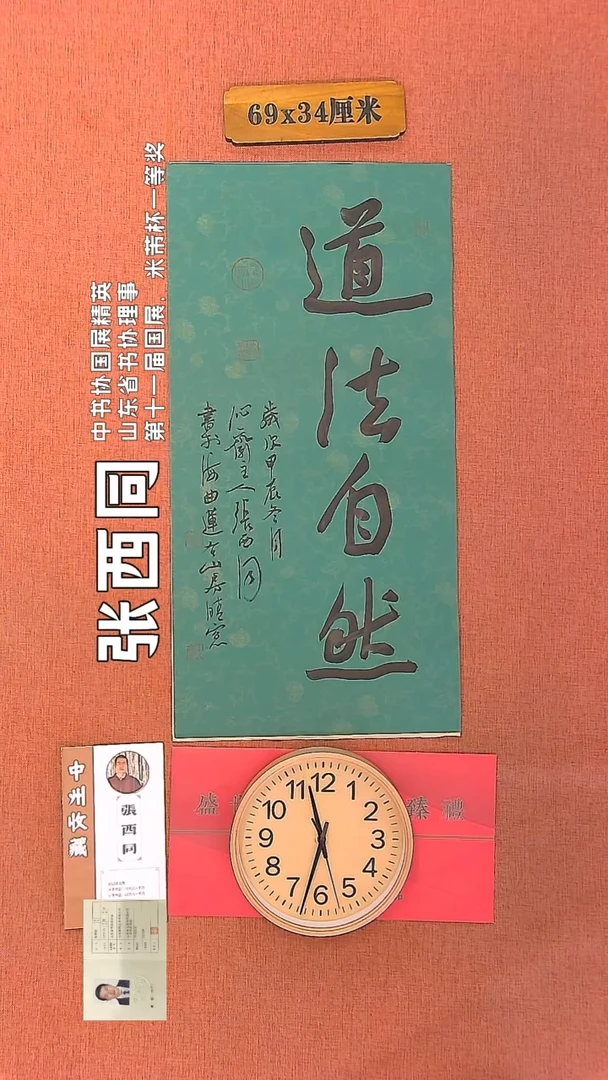 69x34厘米
道法自然
歲次甲辰冬月
沁齋主人張西同
書於海曲蓮台山春曉窓
张西同
中书协国展精英
山东省书协理事
第十一届国展，米芾杯一等奖
直播中
張西同
盛
臻禮
12
1
2
3
4
5
6
7
8
9
10
11